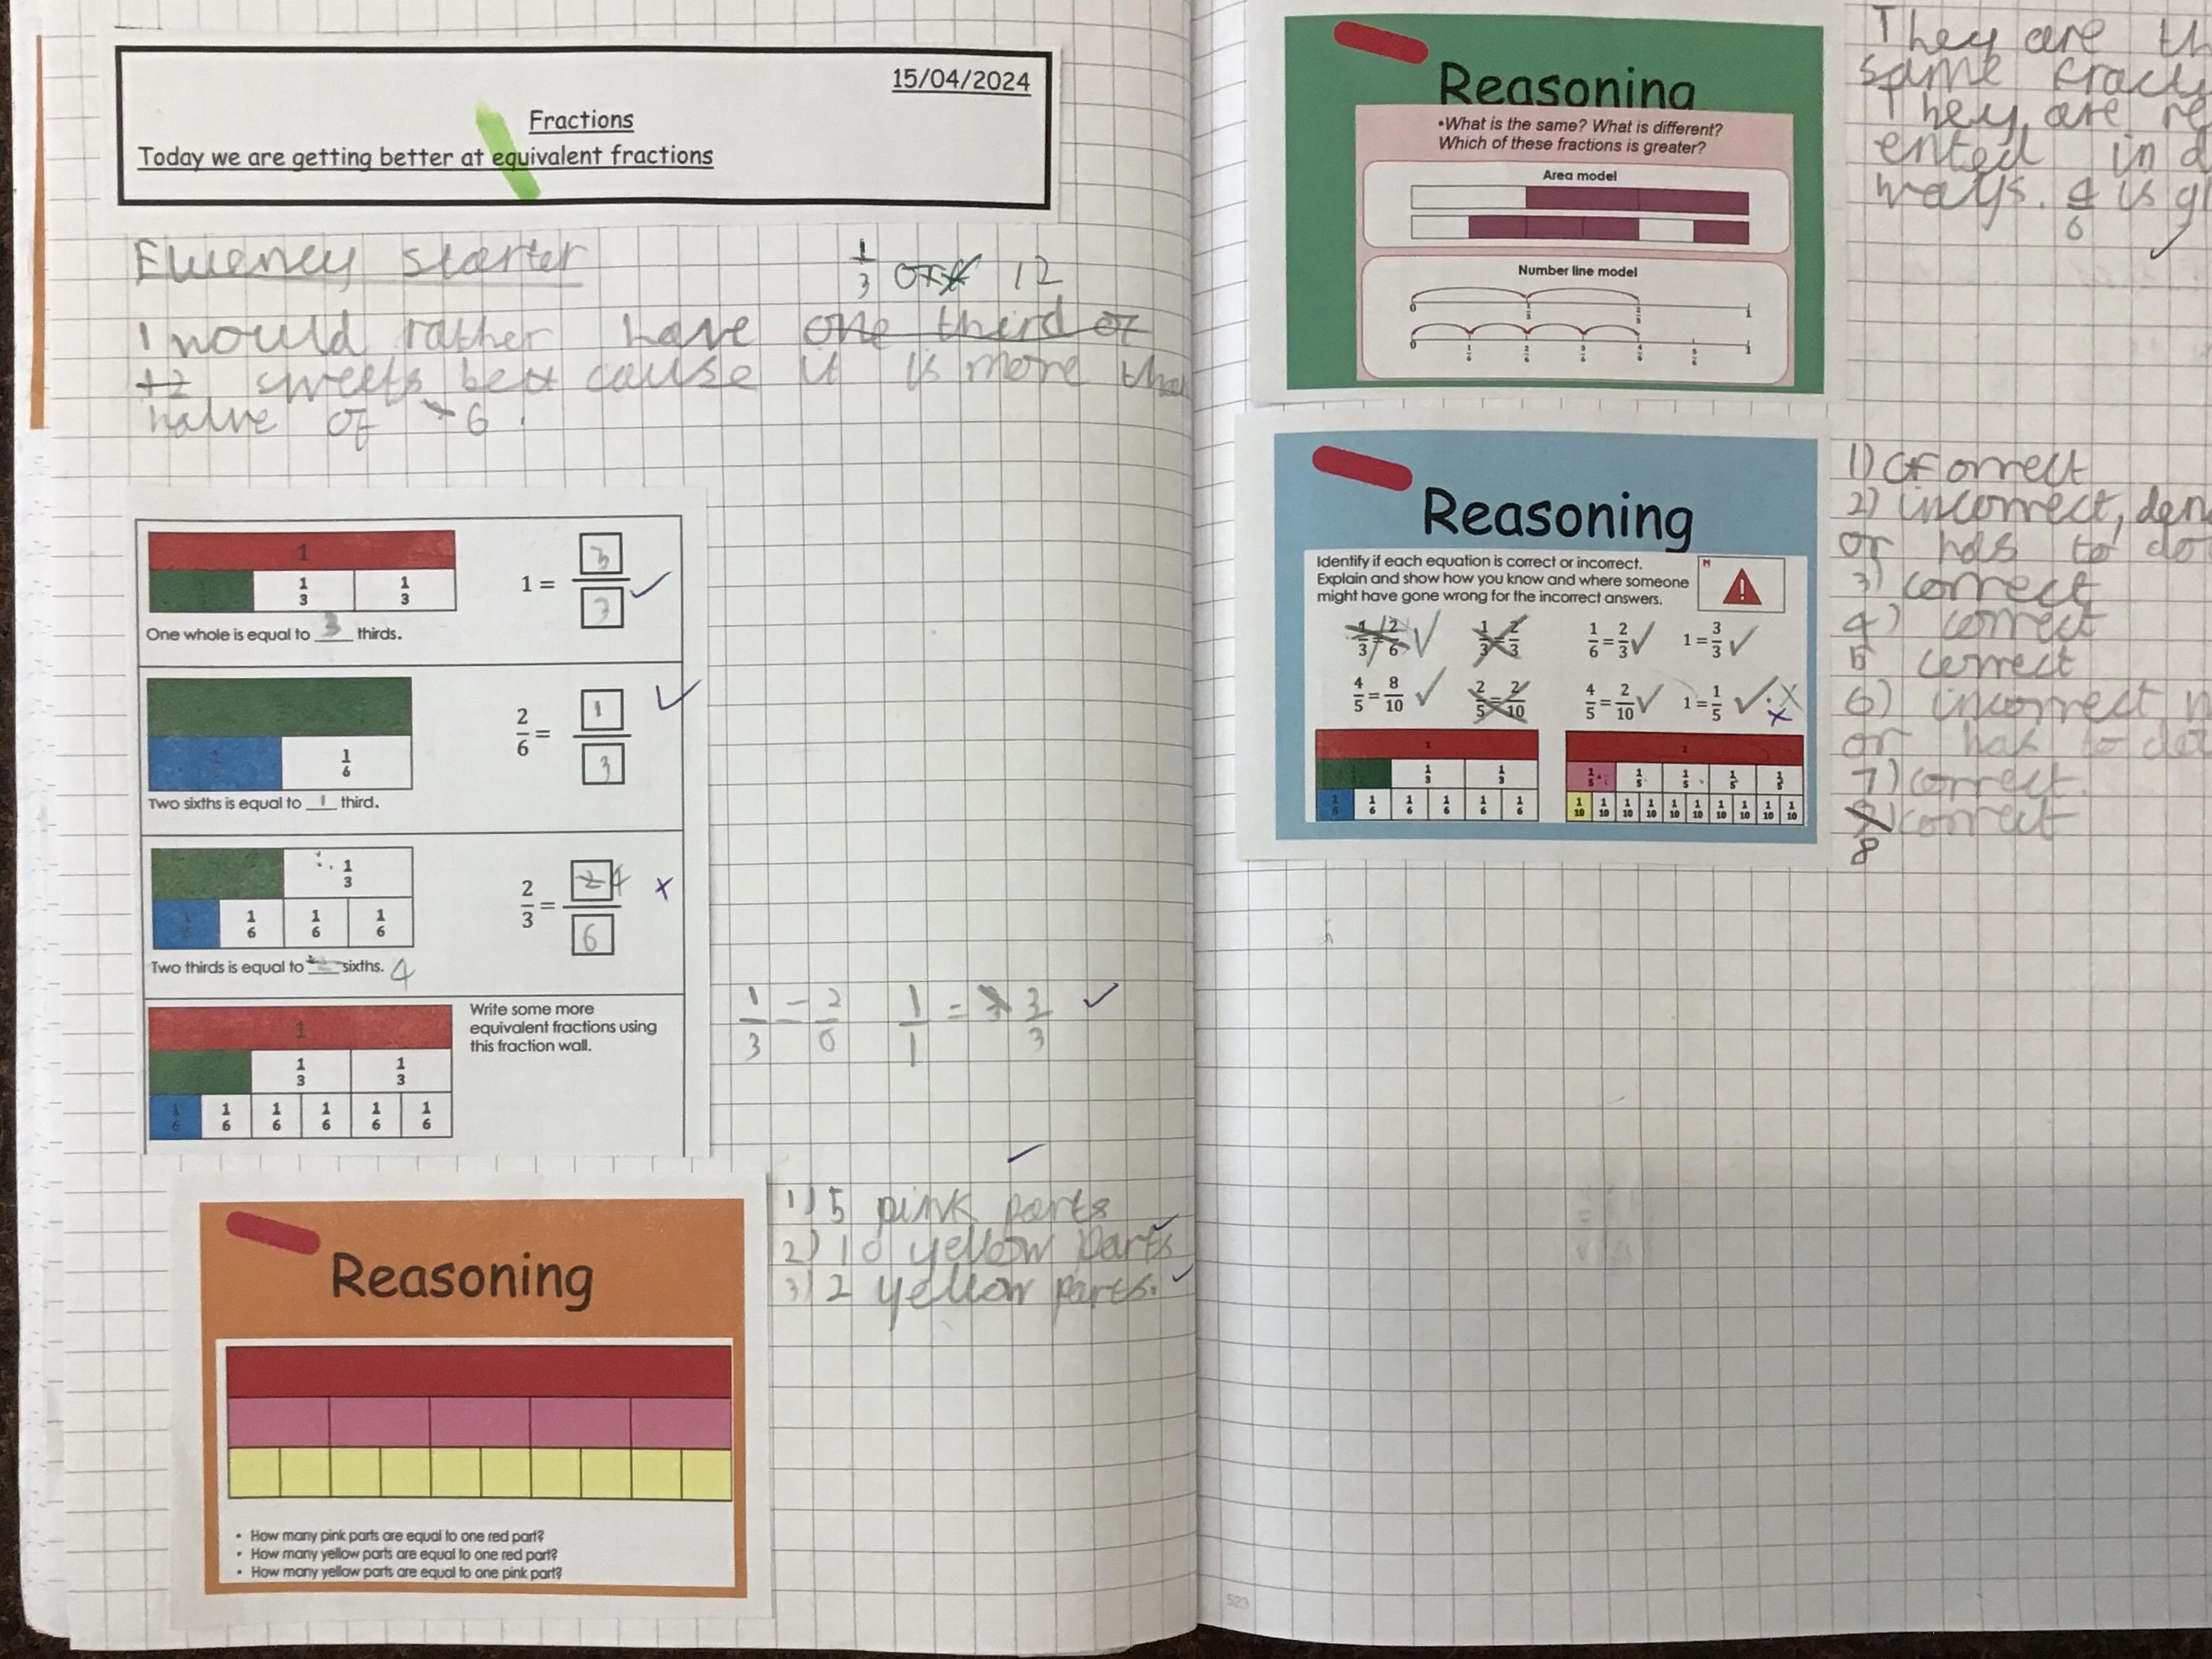 15/04/2024
Fractions
Today we are getting better at equivalent fractions
Fluency starter
1/3 or 12
I would rather have one third of
12 sweets be cause it is more tha
halve of 6.
1
1/3 1/3
1 = 3/3
One whole is equal to 3 thirds.
1/6
2/6 = 1/3
Two sixths is equal to 1 third.
1/3
1/6 1/6 1/6 1/6
2/3 = 2 4/6
Two thirds is equal to sixths. 4
1
1/3 1/3
1/6 1/6 1/6 1/6 1/6 1/6
Write some more
equivalent fractions using
this fraction wall.
1/3 = 2/6 1/1 = 3/3
Reasoning
• How many pink parts are equal to one red part?
• How many yellow parts are equal to one red part?
• How many yellow parts are equal to one pink part?
1) 5 pink parts
2) 10 yellow parts
3) 2 yellow parts.
Reasoning
•What is the same? What is different?
Which of these fractions is greater?
Area model
Number line model
0 1/3 2/3 1
0 1/6 2/6 3/6 4/6 5/6 1
They are th
same fracti
They are re
ented in d
ways. 4/6 is g
Reasoning
Identify if each equation is correct or incorrect.
Explain and show how you know and where someone
might have gone wrong for the incorrect answers.
1/3 = 2/6 1/3 = 2/3 1/6 = 2/3 1 = 3/3
4/5 = 8/10 2/5 = 2/10 4/5 = 2/10 1 = 1/5
1
1/3 1/3
1/6 1/6 1/6 1/6 1/6 1/6
1
1/5 1/5 1/5 1/5 1/5
1/10 1/10 1/10 1/10 1/10 1/10 1/10 1/10 1/10 1/10
1) correct
2) incorrect, den
or has to do
3) correct
4) correct
5 correct
6) incorrect n
or has to do
7) correct.
8 correct
523